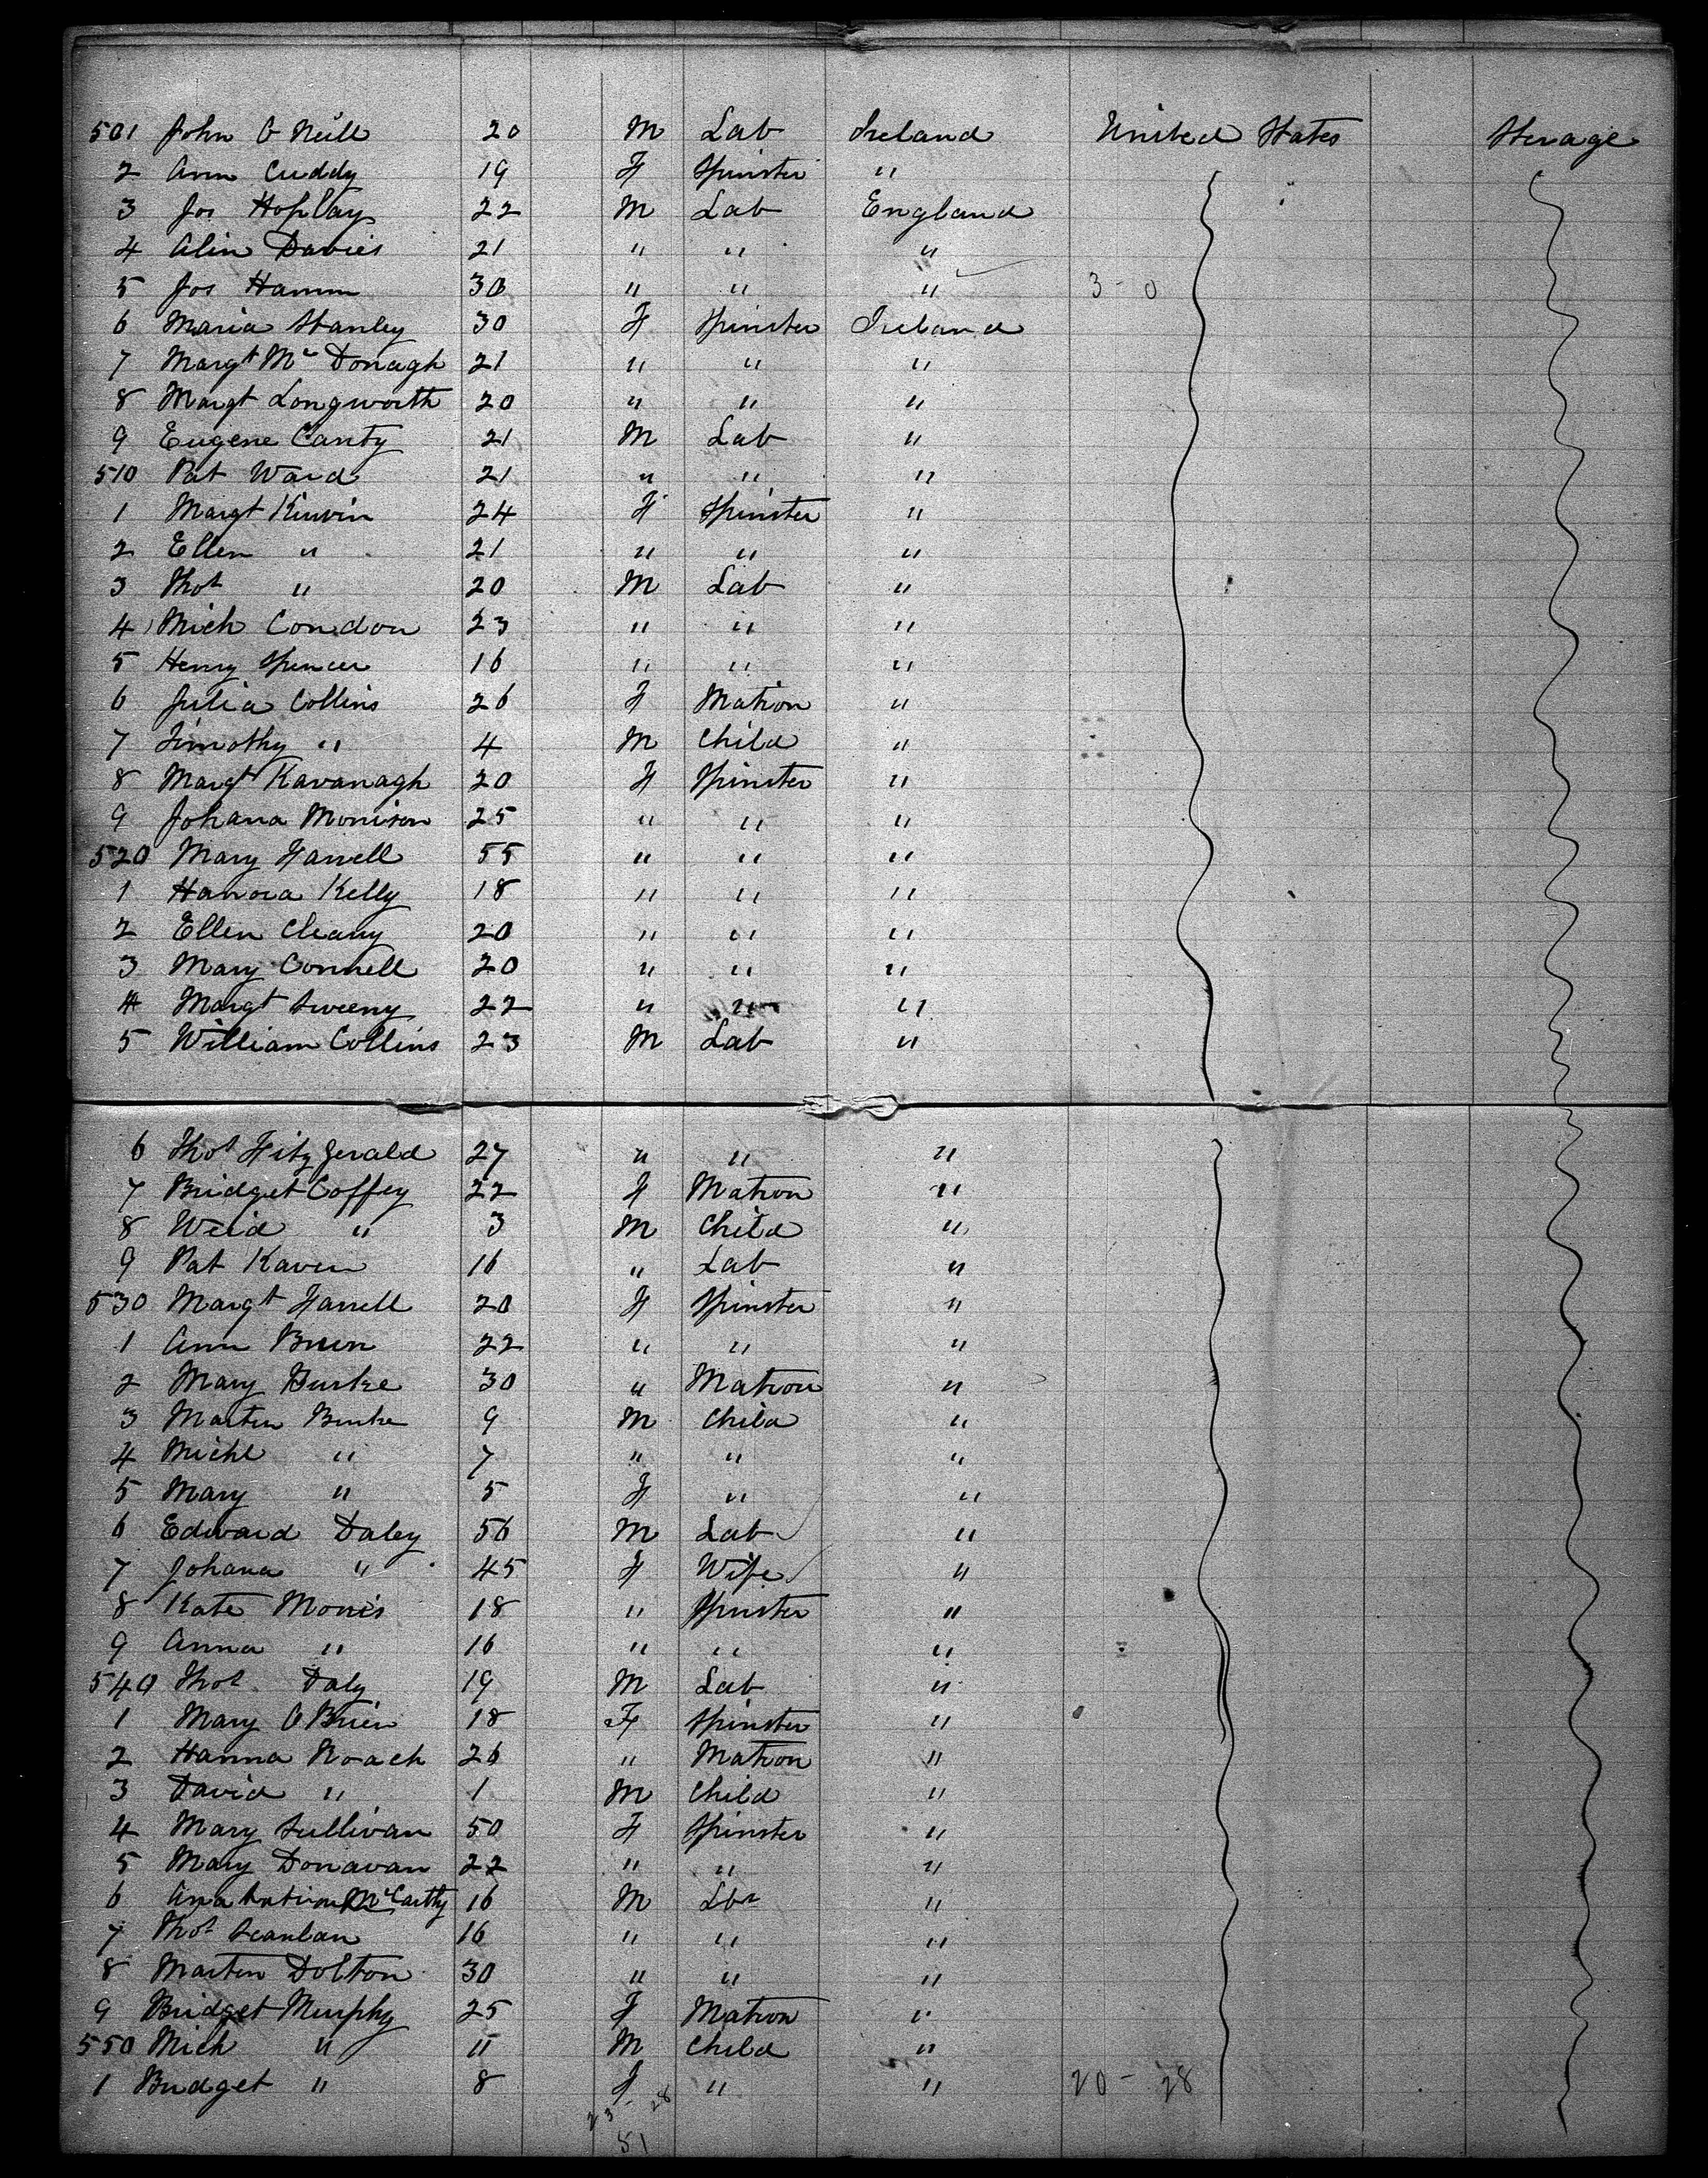 501 John O Neill 20 M Lab Ireland United States Sterage
2 Ann Cuddy 19 F Spinster "
3 Jos 22 M Lab England
4 Davies 21 " " "
5 Jos Hamm 30 " " " 3 - 0
6 Maria Stanley 30 F Spinster Ireland
7 Margt Mc Donagh 21 " " "
8 Margt Longworth 20 " " "
9 Eugene Canty 21 M Lab "
510 Pat Ward 21 " " "
1 Margt Kirwin 24 F Spinster "
2 Ellen " 21 " " "
3 Thos " 20 M Lab "
4 Mich Condon 23 " " "
5 Henry Spencer 16 " " "
6 Julia Collins 26 F Matron "
7 Timothy " 4 M Child "
8 Margt Kavanagh 20 F Spinster "
9 Johana Morrison 25 " " "
520 Mary Farrell 55 " " "
1 Hanora Kelly 18 " " "
2 Ellen Cleary 20 " " "
3 Mary Connell 20 " " "
4 Margt Sweeny 22 " " "
5 William Collins 23 M Lab "
6 Thos Fitzgerald 27 " " "
7 Bridget Coffey 22 F Matron "
8 " 3 M Child "
9 Pat Kaven 16 " Lab "
530 Margt Farrell 20 F Spinster "
1 Ann Breen 22 " " "
2 Mary Burke 30 " Matron "
3 Martin Burke 9 M Child "
4 Michl " 7 " " "
5 Mary " 5 F " "
6 Edward Daley 56 M Lab "
7 Johana " 45 F Wife "
8 Kate Morris 18 " Spinster "
9 Anna " 16 " " "
540 Thos Daly 19 M Lab "
1 Mary O Brien 18 F Spinster "
2 Hanna Roach 26 " Matron "
3 David " 1 M Child "
4 Mary Sullivan 50 F Spinster "
5 Mary Donavan 22 " " "
6 McCarthy 16 M Lbr "
7 Thos Scanlan 16 " " "
8 Marten Dolton 30 " " "
9 Bridget Murphy 25 F Matron "
550 Mich " 11 M Child "
1 Bridget " 8 F " " 20 - 28
23 - 28
51